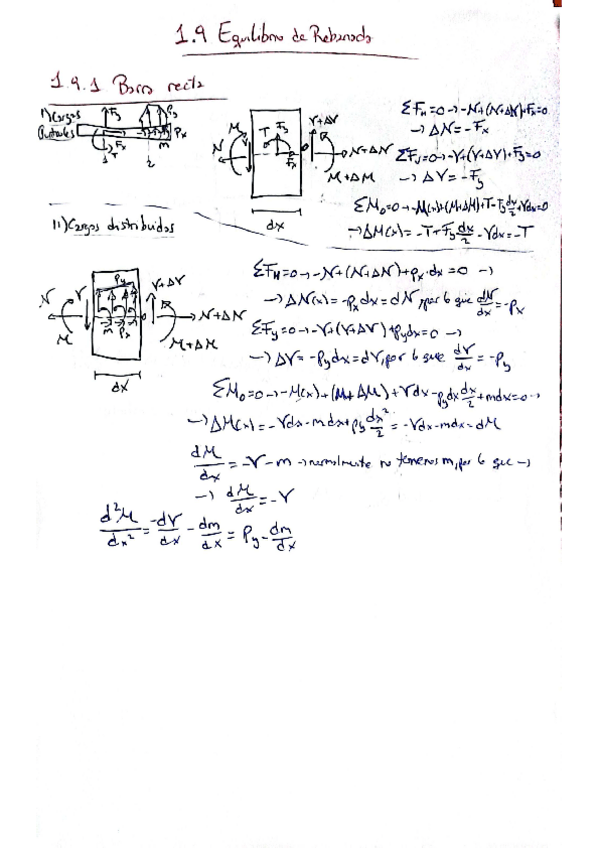 1.9 Equilibrio de Rebanada
1.9.1 Barra recta
I) Cargas
Puntuales
Fy Py Fx T m Px
1 2
M N T Fy Fx V+ΔV N+ΔN M+ΔM
dx
ΣF_H=0 → -N+(N+ΔN)+Fx=0
→ ΔN=-Fx
ΣFy=0 → -V+(V+ΔV)+Fy=0
→ ΔV=-Fy
ΣM_o=0 → -M(x)+(M+ΔM)+T-Fy dx/2+Vdx=0
→ ΔM(x)=-T+Fy dx/2 -Vdx=-T
II) Cargas distribuidas
N V M Py m Px V+ΔV N+ΔN M+ΔM
dx
ΣF_H=0 → -N+(N+ΔN)+px·dx=0 →
→ ΔN(x)=-px dx=dN, por lo que dN/dx=-px
ΣFy=0 → -V+(V+ΔV)+py dx=0 →
→ ΔV=-py dx=dV, por lo que dV/dx=-py
ΣM_o=0 → -M(x)+(M+ΔM)+Vdx-py dx dx/2+mdx=0 →
→ ΔM(x)=-Vdx-mdx+py dx²/2=-Vdx-mdx=dM
dM/dx=-V-m → normalmente no tenemos m, por lo que →
→ dM/dx=-V
d²M/dx²=-dV/dx-dm/dx=Py-dm/dx